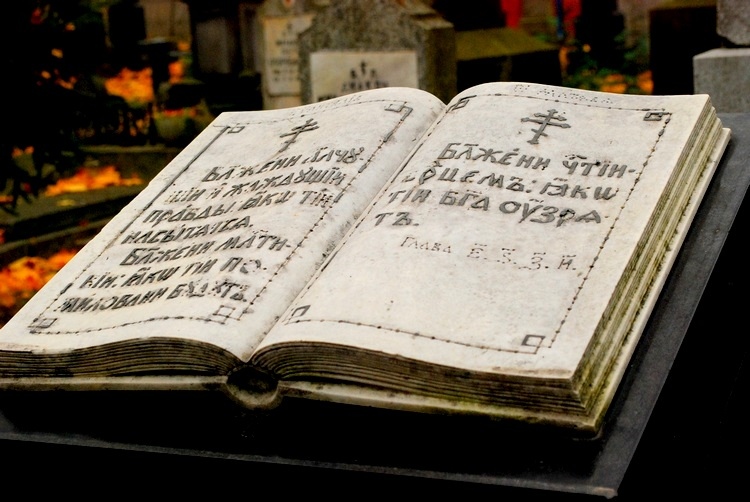 БЛ҃ЖЕНИ А҆ЛЧУ-
ЩIИ И҆ ЖАЖДУЩIИ
ПРАВДЫ: ꙖКѠ ТIИ
НАСЫТАТСА.
БЛ҃ЖЕНИ МЛ҃ТИ-
ВIИ: ꙖКѠ ТIИ ПО-
МИЛОВАНИ БУДУТЪ.
БЛ҃ЖЕНИ ЧТ҃IИ
СРЦЕМЪ: ꙖКѠ
ТIИ БГ҃А ОУЗРА-
ТЪ.
ГЛАВА Е҃. Ѕ҃. З҃. И҃.